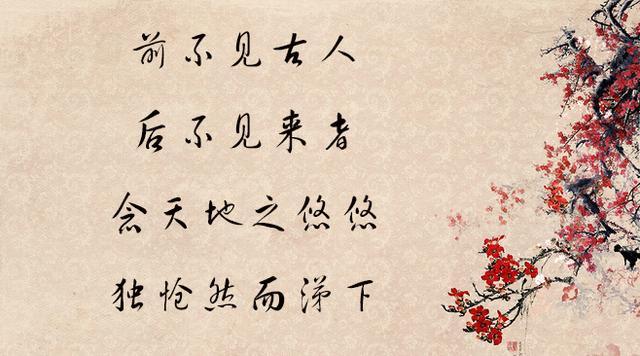 前不见古人
后不见来者
念天地之悠悠
独怆然而涕下